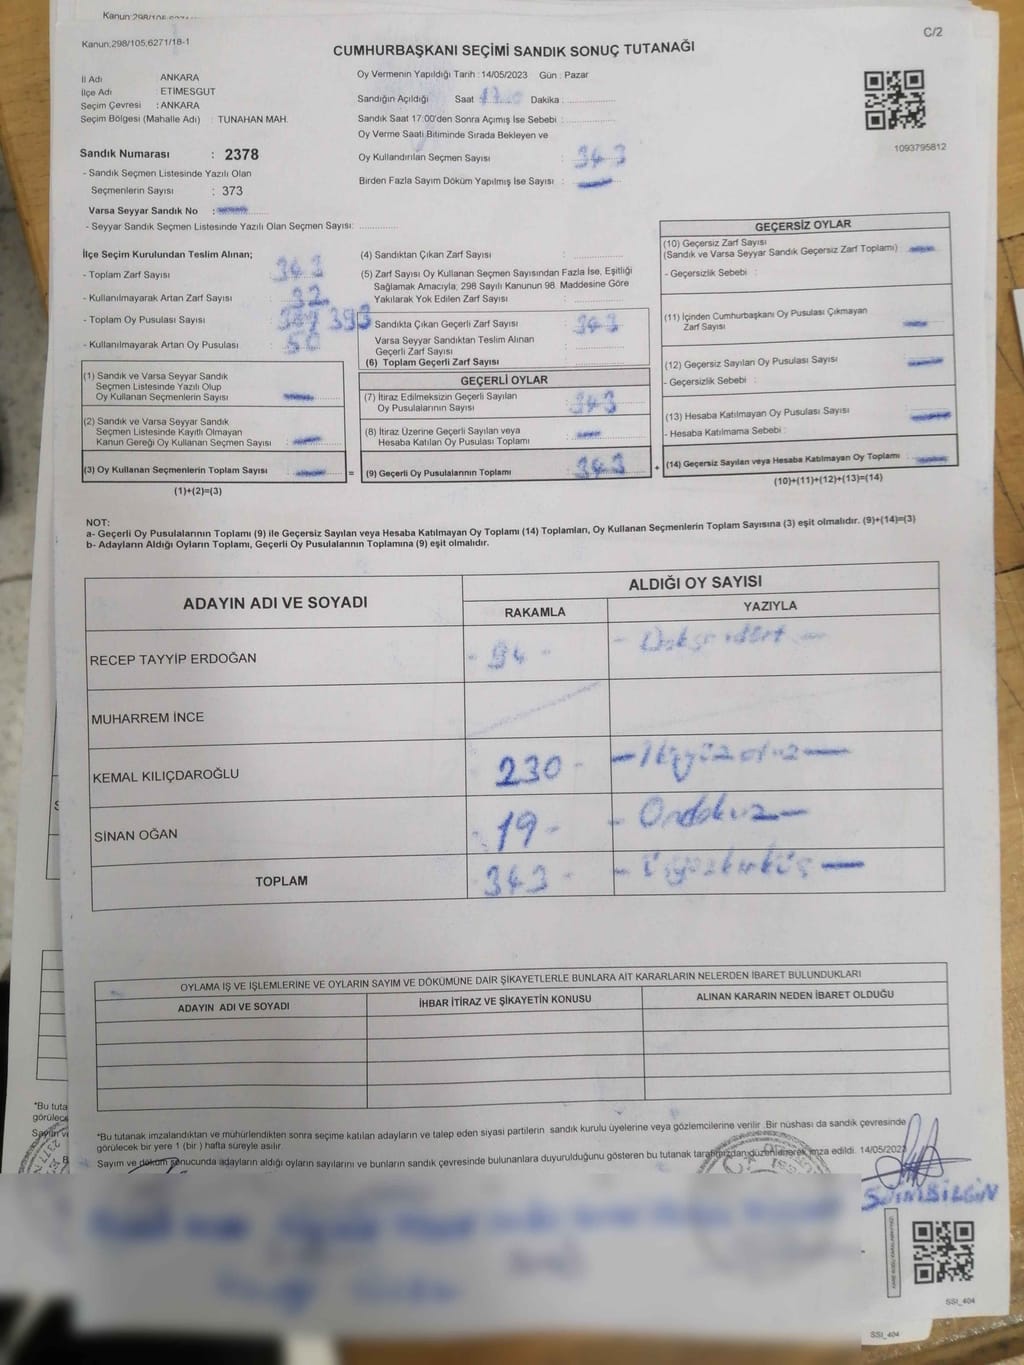 Kanun.298/105.6271/18-1
C/2
CUMHURBAŞKANI SEÇİMİ SANDIK SONUÇ TUTANAĞI
İl Adı : ANKARA
İlçe Adı : ETİMESGUT
Seçim Çevresi : ANKARA
Seçim Bölgesi (Mahalle Adı) : TUNAHAN MAH.
Sandık Numarası : 2378
- Sandık Seçmen Listesinde Yazılı Olan
Seçmenlerin Sayısı : 373
Varsa Seyyar Sandık No :
- Seyyar Sandık Seçmen Listesinde Yazılı Olan Seçmen Sayısı:
Oy Vermenin Yapıldığı Tarih : 14/05/2023 Gün : Pazar
Sandığın Açıldığı Saat Dakika :
Sandık Saat 17:00'den Sonra Açımış İse Sebebi :
Oy Verme Saati Bitiminde Sırada Bekleyen ve
Oy Kullandırılan Seçmen Sayısı : 343
Birden Fazla Sayım Döküm Yapılmış İse Sayısı :
1093795812
İlçe Seçim Kurulundan Teslim Alınan;
- Toplam Zarf Sayısı 343
- Kullanılmayarak Artan Zarf Sayısı : 32
- Toplam Oy Pusulası Sayısı : 393
- Kullanılmayarak Artan Oy Pusulası : 50
(1) Sandık ve Varsa Seyyar Sandık
Seçmen Listesinde Yazılı Olup
Oy Kullanan Seçmenlerin Sayısı :
(2) Sandık ve Varsa Seyyar Sandık
Seçmen Listesinde Kayıtlı Olmayan
Kanun Gereği Oy Kullanan Seçmen Sayısı :
(3) Oy Kullanan Seçmenlerin Toplam Sayısı : =
(1)+(2)=(3)
(4) Sandıktan Çıkan Zarf Sayısı :
(5) Zarf Sayısı Oy Kullanan Seçmen Sayısından Fazla İse, Eşitliği
Sağlamak Amacıyla; 298 Sayılı Kanunun 98. Maddesine Göre
Yakılarak Yok Edilen Zarf Sayısı :
Sandıkta Çıkan Geçerli Zarf Sayısı : 343
Varsa Seyyar Sandıktan Teslim Alınan
Geçerli Zarf Sayısı :
(6) Toplam Geçerli Zarf Sayısı :
GEÇERLİ OYLAR
(7) İtiraz Edilmeksizin Geçerli Sayılan
Oy Pusulalarının Sayısı : 343
(8) İtiraz Üzerine Geçerli Sayılan veya
Hesaba Katılan Oy Pusulası Toplamı :
(9) Geçerli Oy Pusulalarının Toplamı : 343 +
GEÇERSİZ OYLAR
(10) Geçersiz Zarf Sayısı
(Sandık ve Varsa Seyyar Sandık Geçersiz Zarf Toplamı) :
- Geçersizlik Sebebi :
(11) İçinden Cumhurbaşkanı Oy Pusulası Çıkmayan
Zarf Sayısı :
(12) Geçersiz Sayılan Oy Pusulası Sayısı :
- Geçersizlik Sebebi :
(13) Hesaba Katılmayan Oy Pusulası Sayısı :
- Hesaba Katılmama Sebebi :
(14) Geçersiz Sayılan veya Hesaba Katılmayan Oy Toplamı :
(10)+(11)+(12)+(13)=(14)
NOT:
a- Geçerli Oy Pusulalarının Toplamı (9) ile Geçersiz Sayılan veya Hesaba Katılmayan Oy Toplamı (14) Toplamları, Oy Kullanan Seçmenlerin Toplam Sayısına (3) eşit olmalıdır. (9)+(14)=(3)
b- Adayların Aldığı Oyların Toplamı, Geçerli Oy Pusulalarının Toplamına (9) eşit olmalıdır.
ADAYIN ADI VE SOYADI
ALDIĞI OY SAYISI
RAKAMLA YAZIYLA
RECEP TAYYİP ERDOĞAN - 94 - - Doksandört -
MUHARREM İNCE
KEMAL KILIÇDAROĞLU 230 - - İkiyüzotuz -
SİNAN OĞAN - 19 - - Ondokuz -
TOPLAM 343 - - Üçyüzkırküç -
OYLAMA İŞ VE İŞLEMLERİNE VE OYLARIN SAYIM VE DÖKÜMÜNE DAİR ŞİKAYETLERLE BUNLARA AİT KARARLARIN NELERDEN İBARET BULUNDUKLARI
ADAYIN ADI VE SOYADI İHBAR İTİRAZ VE ŞİKAYETİN KONUSU ALINAN KARARIN NEDEN İBARET OLDUĞU
*Bu tutanak imzalandıktan ve mühürlendikten sonra seçime katılan adayların ve talep eden siyasi partilerin sandık kurulu üyelerine veya gözlemcilerine verilir. Bir nüshası da sandık çevresinde
görülecek bir yere 1 (bir ) hafta süreyle asılır.
Sayım ve döküm sonucunda adayların aldığı oyların sayılarını ve bunların sandık çevresinde bulunanlara duyurulduğunu gösteren bu tutanak tarafımızdan düzenlenerek imza edildi. 14/05/2023
BİLGİN
SSI_404
SSI_404